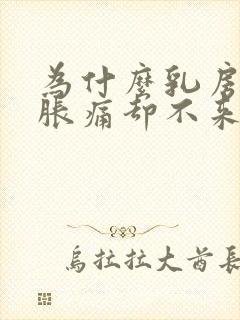 為什麼乳房
脹痛卻不來
烏拉拉大酋長